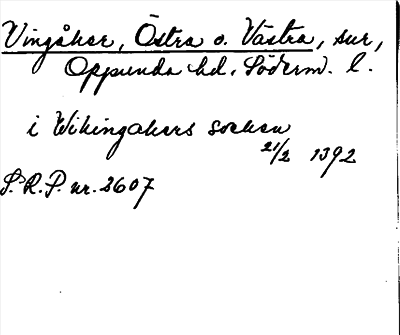 Vingåker, Östra o. Västra, sur,
Oppunda hd, Söderm. l.
i Wikingakers socken
21/2 1392
S.R.P. nr. 2607